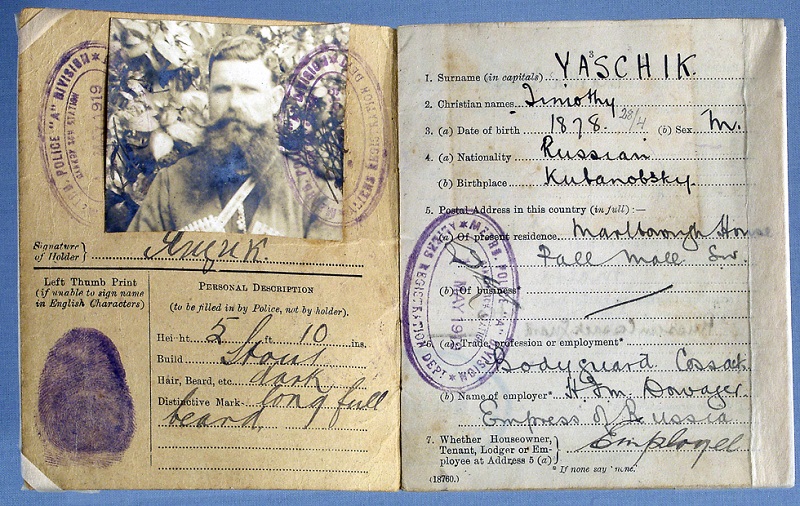 POLICE "A" DIVISION
1919
ALIENS REGISTRATION DEPT
Signature
of Holder
Ящик.
Left Thumb Print
(if unable to sign name
in English Characters)
PERSONAL DESCRIPTION
(to be filled in by Police, not by holder).
Height 5 ft. 10 ins.
Build Stout
Hair, Beard, etc. dark
Distinctive Mark long full
beard
3
1. Surname (in capitals) YASCHIK.
2. Christian names Timothy
3. (a) Date of birth 1878. 28/4 (b) Sex M.
4. (a) Nationality Russian
(b) Birthplace Kubanobsky.
5. Postal Address in this country (in full) :—
(a) Of present residence. Marlborough House
Pall Mall Sw.
(b) Of business*
METRO. POLICE "A" DIVISION
MAY 1919
ALIENS REGISTRATION DEPT
6. (a) Trade, profession or employment*
Bodyguard Cossack
(b) Name of employer* H.I.M. Dowager
Empress of Russia
7. Whether Houseowner,
Tenant, Lodger or Em-
ployee at Address 5 (a) Employee
* If none say "none."
(18760.)